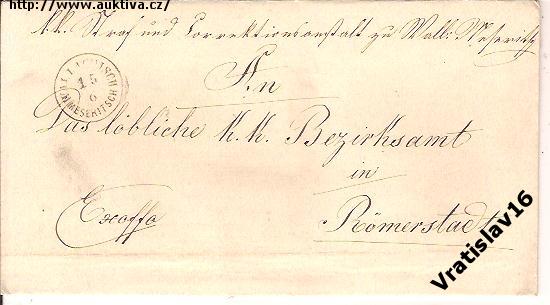 http://www.auktiva.cz/
k.k. Straf und Correktionsanstalt zu Wall: Meseritsch
WALLACHISCH
15
6
MESERITSCH
An
Das löbliche k.k. Bezirksamt
in
Exoffo
Römerstadt
Vratislav16